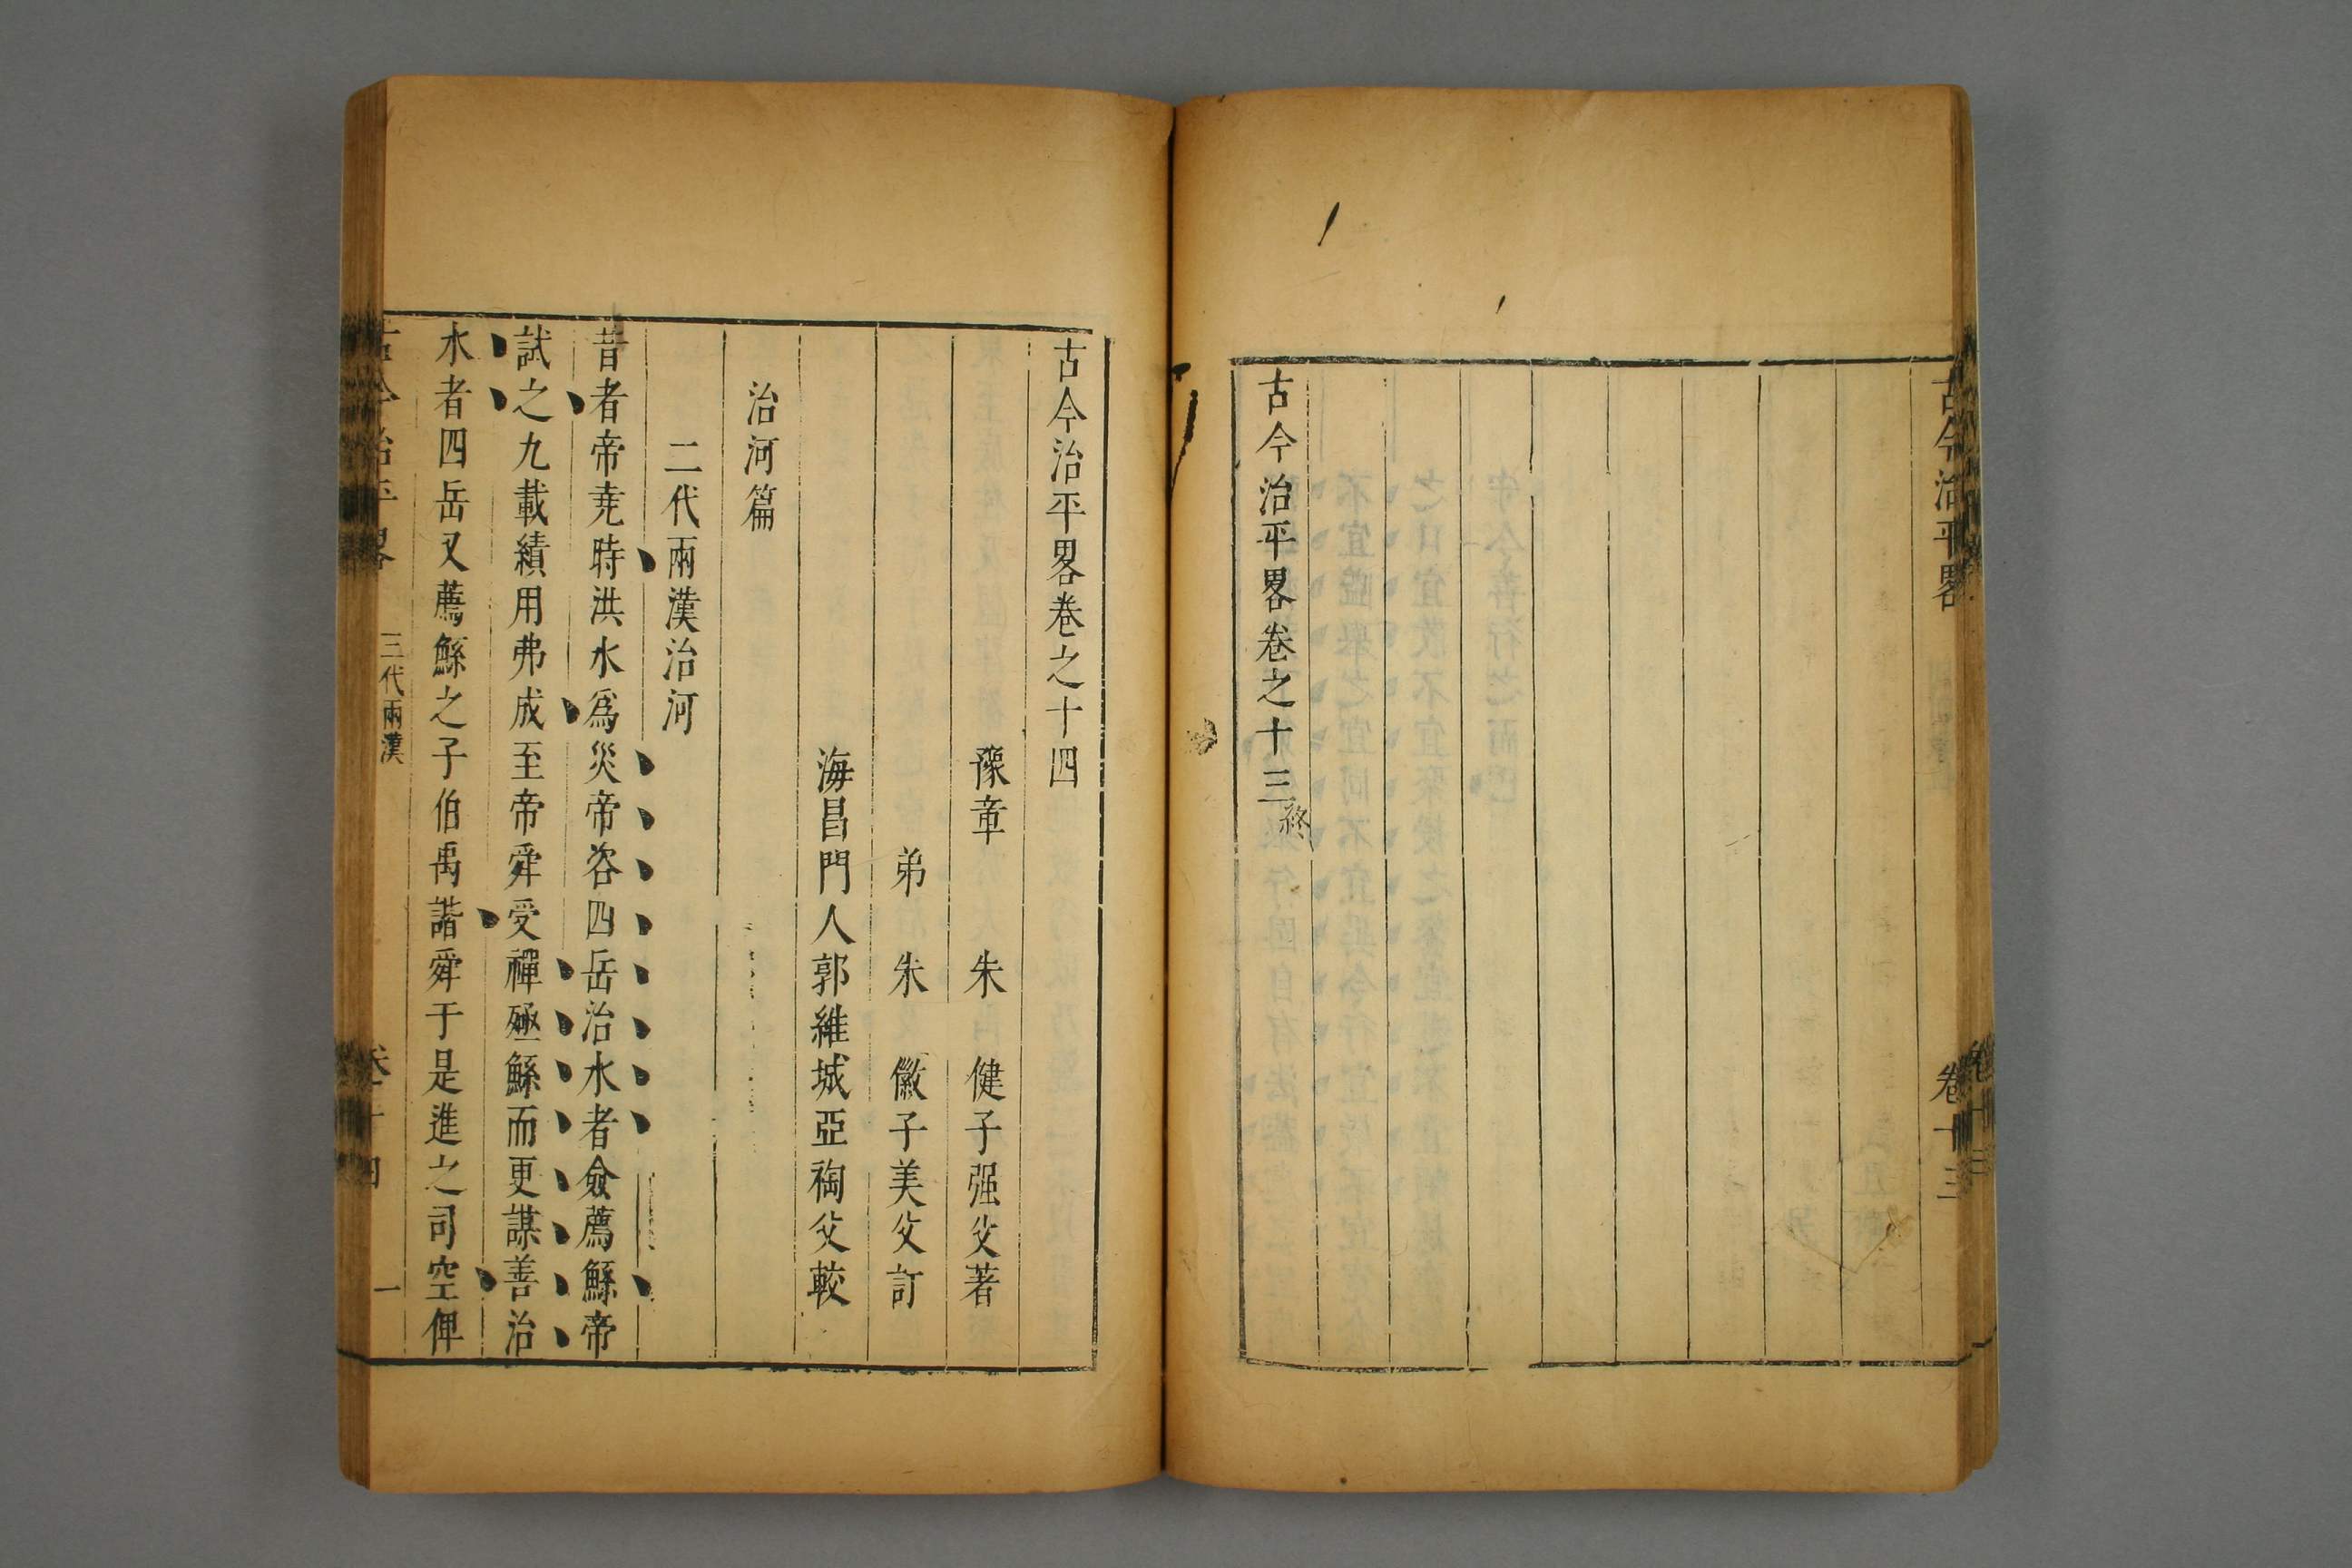 古今治平畧
卷十三
古今治平畧卷之十三終
古今治平畧卷之十四
豫章 朱 健子强父著
弟 朱 徽子美父訂
海昌門人郭維城亞裪父較
治河篇
二代兩漢治河
昔者帝尭時洪水爲災帝咨四岳治水者僉薦鯀帝
試之九載績用弗成至帝舜受禪殛鯀而更謀善治
水者四岳又薦鯀之子伯禹諧舜于是進之司空俾
古今治平畧 三代兩漢 卷十四 一